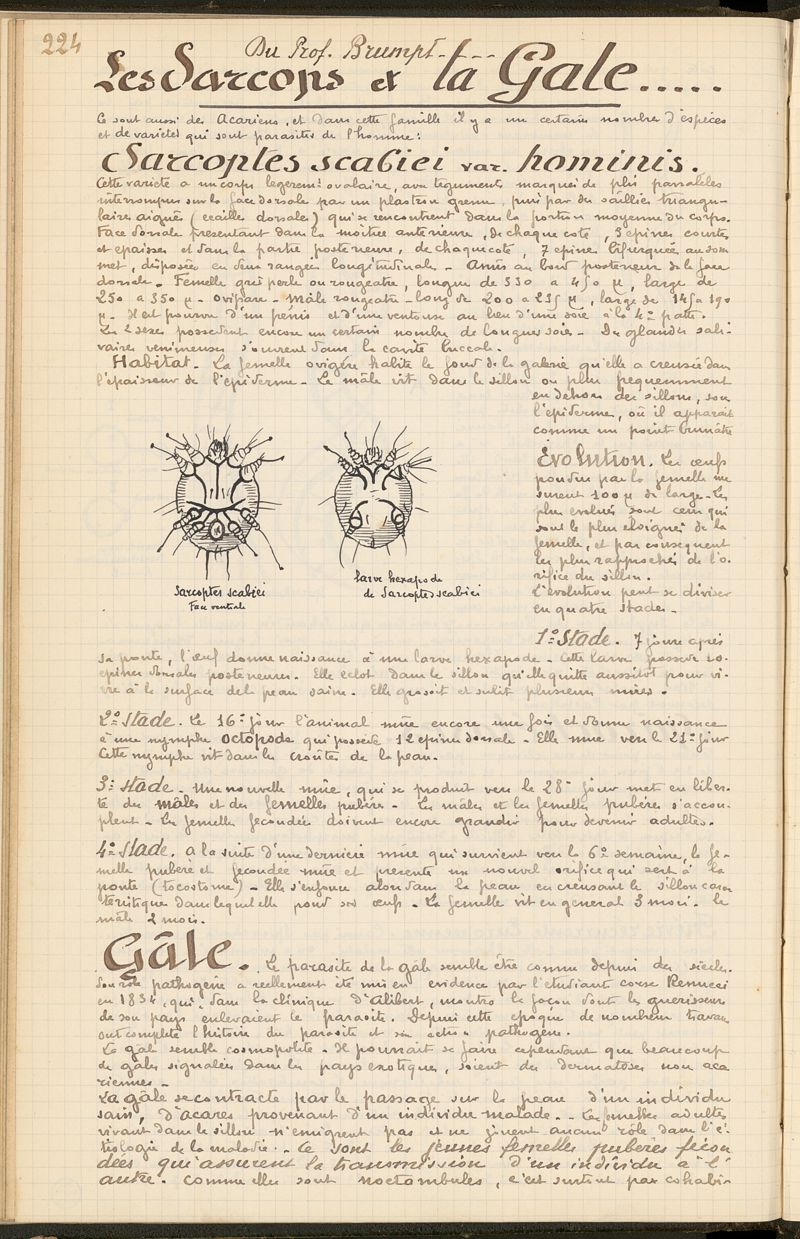 224
Du Prof. Brumpt - - -
Les Sarcops et la Gale.....
Ce sont aussi des Acariens, et dans cette famille il y a un certain nombre d'espèces
et de varietés qui sont parasites de l'homme:
Sarcoptes scabiei var. hominis.
Cette varieté a un corps legerem! ovalaire, avec teguments marqués de plis paralleles
interrompus sur la face dorsale par un plastron grenu, puis par des saillies triangu-
laires aiguës (ecailles dorsales) qui se rencontrent dans la portion moyenne du corps.
Face dorsale presentant dans la moitiee anterieure, de chaque coté, 3 epines courtes
et epaisses et dans la partie posterieure, de chaque coté, 7 epines bifurquées au som
met, disposées en deux rangées longitudinales - Anus au bord posterieur de la face
dorsale - Femelle gris perle ou rougeatre, longue de 330 a 450 µ, large de
250 a 350 µ - ovipare - Mâle rougeatre - long de 200 a 235 µ, large de 145 a 190
µ - Il est pourvu d'un penis et d'une ventouse au lieu d'une soie à la 4e patte.
Les 2 sexes possedent encore un certain nombre de longues soies - Des glandes sali-
vaires venimeuses s'ouvrent dans la cavité buccale.
Habitat - La femelle ovigère habite le fond de la galerie qu'elle a creusée dans
l'epaisseur de l'epiderme - Le mâle vit dans le sillon ou plus frequemment
en dehors des sillons, sous
l'epiderme, où il apparait
comme un point brunâtre
Evolution. Les œufs
pondus par la femelle me
surent 100 µ de large - Les
plus evolués sont ceux qui
sont le plus eloignés de la
femelle, et par consequent
les plus rapprochés de l'o-
rifice du sillon.
L'evolution peut se diviser
en quatre stades -
Sarcoptes scabiei
Face ventrale
Larve hexapode
de Sarcoptes scabiei
1° Stade - 7 jours après
sa ponte, l'œuf donne naissance à une larve hexapode - Cette larve possede 10
epines dorsales posterieures. Elle eclot dans le sillon qu'elle quitte aussitôt pour vi-
vre à la surface de la peau saine. Elle grossit et subit plusieurs mûes.
2° Stade - Le 16e jour l'animal mûe encore une fois et donne naissance
à une nymphe octopode qui possède 12 epines dorsales - Elle mue vers le 21e jour
Cette nymphe vit dans les croûtes de la peau.
3° Stade - Une nouvelle mûe, qui se produit vers le 28e jour met en liber-
té des mâles et des femelles pubères - Les mâles et les femelles pubères s'accou-
plent - Les femelles fecondées doivent encore grandir pour devenir adultes.
4° Stade. à la suite d'une derniere mûe qui survient vers la 6e semaine, la fe-
melle pubère et fecondée mûe et presente un nouvel orifice qui sert à la
ponte (tocostome) - Elle s'enfonce alors dans la peau en creusant le sillon carac
téristique dans lequel elle pond ses œufs - La femelle vit en general 3 mois - le
mâle 2 mois.
Gâle. Le parasite de la gâle semble être connu depuis des siècles.
Son role pathogène a reellement été mis en evidence par l'etudiant corse Renucci
en 1834 qui, dans la clinique d'Alibert, montra la façon dont les guerisseurs
de son pays enlevaient le parasite. Depuis cette epoque de nombreux travaux
ont completé l'histoire du parasite et son action pathogène.
La gâle semble cosmopolite - Il pourrait se faire cependant que beaucoup
de gales signalées dans les pays exotiques, soient des dermatoses non aca
riennes -
La gâle se contracte par le passage sur la peau d'un individu
sain, d'acares provenant d'un individu malade - Les femelles adultes
vivant dans le sillon n'emigrent pas et ne jouent aucun rôle dans l'é-
tiologie de la maladie - Ce sont les jeunes femelles pubères fécon
dées qui assurent la transmission d'un individu à l'
autre. Comme elles sont noctambules, c'est surtout par cohabi-